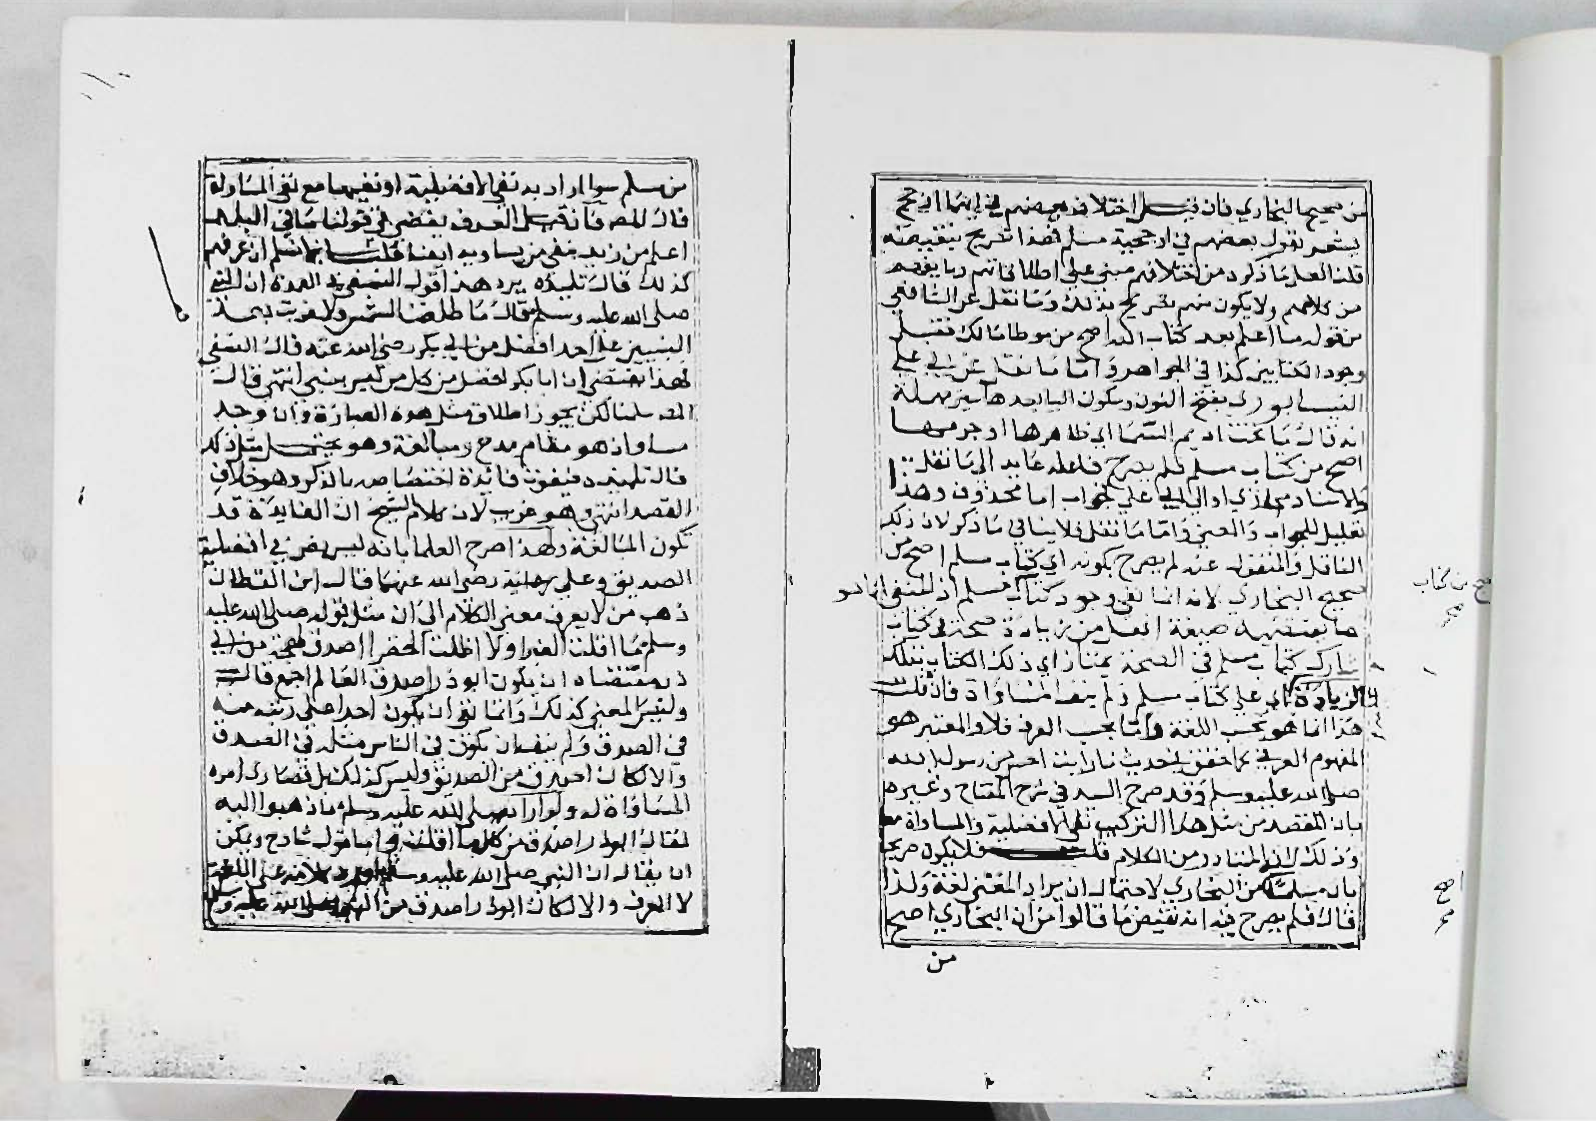 من صحيح البخاري فان قيل اختلاف بعضهم في ايهما ارجح
يشعر بقول بعضهم في ارجحية مسلم فهذا تصريح بنقيضه
قلنا لعل ما ذكره من اختلافهم مبني على اطلاقاتهم وما يفهم
من كلامهم ولا يكون منهم تصريح بذلك وما نقل عن الشافعي
من قوله ما اعلم بعد كتاب الله اصح من موطا مالك فقبل
وجود الكتابين كذا في الجواهر واما ما نقل عن ابي علي
النيسابوري بفتح النون وسكون اليا بعدها سين مهملة
انه قال ما تحت اديم السما اي ظاهرها او جرمها
اصح من كتاب مسلم فلم يصرح فاعله عايد الى ما نقل
والاسناد مجازي او الى ابي علي الجواب اما محذوف وهذا
تعليل للجواب والمعنى واما ما نقل فلا ينافي ما ذكر لان ذلك
الناقل والمنقول عنه لم يصرح بكونه اي كتاب مسلم اصح من
صحيح البخاري لانه انما نفى وجود كتاب مسلم اذ المنفي انما هو
ما يقتضيه صيغة افعل من زيادة صحة في كتاب
شارك كتاب مسلم في الصحة يمتاز اي ذلك الكتاب بتلك
الزيادة اي على كتاب مسلم ولم ينف المساواة فان قلت
هذا انما هو بحسب اللغة واما بحسب العرف فلا والمعتبر هو
المفهوم العرفي كما حقق في حديث ما رايت احسن من رسول الله
صلى الله عليه وسلم وقد صرح السيد في شرح المفتاح وغيره
بان المقصد من مثل هذا التركيب نفي الافضلية والمساواة معا
وذلك المتبادر من الكلام قلت فلا يكون صريحا
بان مسلما من البخاري لاحتمال ان يراد المعنى لغة ولذا
قال فلم يصرح فيه انه نقيض ما قالوا من ان البخاري اصح
من
صح من كتاب
صح
اصح
صح
من مسلم سوا اراد به نفي الافضلية او نفيها مع نفي المساواة
قال المص فان قيل العرف يقضي في قولنا ما في البلد
اعلم من زيد بنفي من يساويه ايضا قلت لا نسلم ان عرفهم
كذلك قال تلميذه يرد هذا قول النسفي في العمدة ان النبي
صلى الله عليه وسلم قال ما طلعت الشمس ولا غربت بعد
النبيين على احد افضل من ابي بكر رضي الله عنه قال النسفي
فهذا يقتضي ان ابا بكر افضل من كل من ليس بنبي انتهى قال
المص سلمنا لكن يجوز اطلاق مثل هذه العبارة وان وجد
مساو اذ هو مقام مدح ومبالغة وهو يحتمل مثل ذلك
قال تلميذه فتفوت فائدة اختصاصه بالذكر وهو خلاف
القصد انتهى وهو غريب لان كلام الشيخ ان الفايدة قد
تكون المبالغة ولهذا صرح العلما بانه ليس نص في افضلية
الصديق وعلي رضي الله عنهما قال ابن القطان
ذهب من لا يعرف معنى الكلام الى ان مثل قوله صلى الله عليه
وسلم ما اقلت الغبرا ولا اظلت الخضرا اصدق لهجة من ابي
ذر مقتضاه ان يكون ابو ذر اصدق العالم اجمع قال
وليس المعنى كذلك وانما نفى ان يكون احد اعلى رتبة منه
في الصدق ولم ينف ان يكون في الناس مثله في الصدق
والا لكان اصدق من الصديق وليس كذلك بل قصارى امره
المساواة له ولو اراد صلى الله عليه وسلم ما ذهبوا اليه
لقال ابو ذر اصدق من كل ما اقلت شارح ويمكن
ان يقال ان النبي صلى الله عليه وسلم كلامه على اللغة
لا العرف والا لكان ابو ذر اصدق من النبي صلى الله عليه وسلم